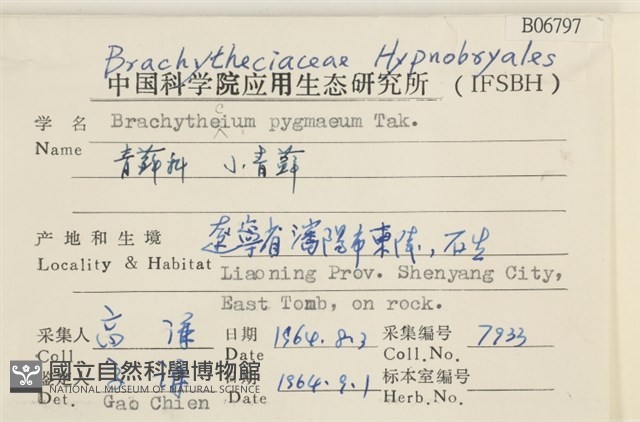 B06797
Brachytheciaceae Hypnobryales
中国科学院应用生态研究所 (IFSBH)
学名 Brachythecium pygmaeum Tak.
Name
青藓科 小青藓
产地和生境 遼寧省瀋陽市東陵,石生
Locality & Habitat Liaoning Prov. Shenyang City,
East Tomb, on rock.
采集人 高谦 日期 1964.8.3 采集编号 7933
Coll. Date Coll.No.
日期 1964.9.1 标本室编号
Det. Gao Chien Date Herb.No.
國立自然科學博物館
NATIONAL MUSEUM OF NATURAL SCIENCE